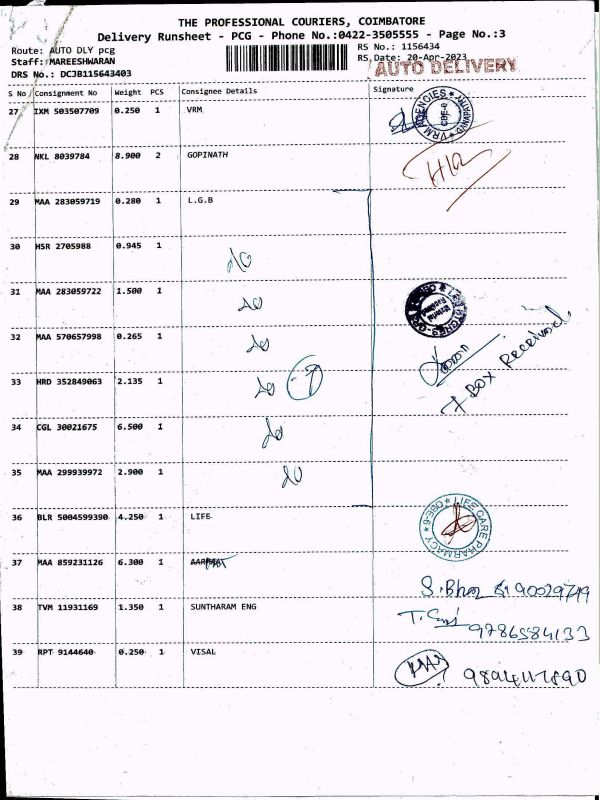 THE PROFESSIONAL COURIERS, COIMBATORE
Delivery Runsheet - PCG - Phone No.:0422-3505555 - Page No.:3
Route: AUTO DLY pcg
RS No.: 1156434
Staff: MAREESHWARAN
RS Date: 20-Apr-2023
AUTO DELIVERY
DRS No.: DCJB115643403
S No Consignment No Weight PCS Consignee Details Signature
27 IXM 503507709 0.250 1 VRM
VRM AGENCIES
28 NKL 8039784 8.900 2 GOPINATH
29 MAA 283059719 0.280 1 L.G.B
30 HSR 2705988 0.945 1
31 MAA 283059722 1.500 1
32 MAA 570657998 0.265 1
7 BOX Received
33 HRD 352849063 2.135 1 7
34 CGL 30021675 6.500 1
35 MAA 299939972 2.900 1
36 BLR 5004599390 4.250 1 LIFE
LIFE CARE PHARMACY
37 MAA 859231126 6.300 1
38 TVM 11931169 1.350 1 SUNTHARAM ENG
9786584133
39 RPT 9144640 0.250 1 VISAL